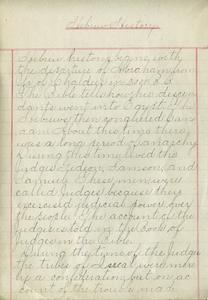 Hebrew History
Hebrew history begins with
the departure of Abraham from
Ur of Chaldea in B.C.
The Bible tells how his descen-
dants went into Egypt. The
Hebrews then conquered Can-
aan. About this time there
was a long period of anarchy.
During this time lived the
judges Gideon, Samson, and
Samuel. These men were
called Judges because they
exercised judicial power over
the people. The account of the
judges is told in the book of
Judges in the Bible.
During the time of the Judges
the tribes of Israel were more
like a confederation, but on ac-
count of the trouble made